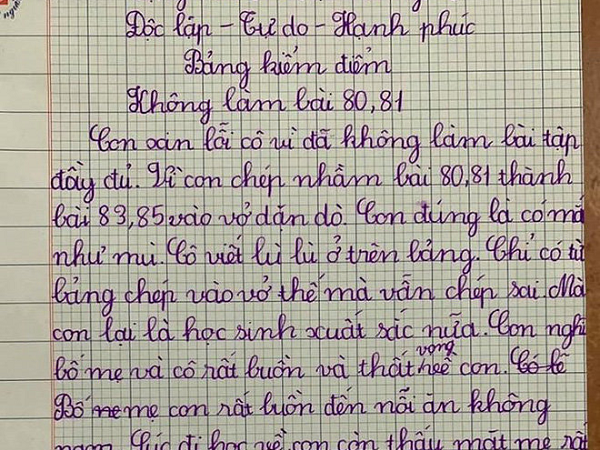 Độc lập - Tự do - Hạnh phúc
Bảng kiểm điểm
Không làm bài 80,81
Con xin lỗi cô vì đã không làm bài tập
đầy đủ. Vì con chép nhầm bài 80,81 thành
bài 83,85 vào vở dặn dò. Con đúng là có mắ
như mù. Cô viết lù lù ở trên bảng. Chỉ có từ
bảng chép vào vở thế mà vẫn chép sai. Mà
con lại là học sinh xuất sắc nữa. Con nghĩ
bố mẹ và cô rất buồn và thất vọng về con. Có lẽ
Bố mẹ con rất buồn đến nỗi ăn không
ngon. Lúc đi học về con còn thấy mặt mẹ rất